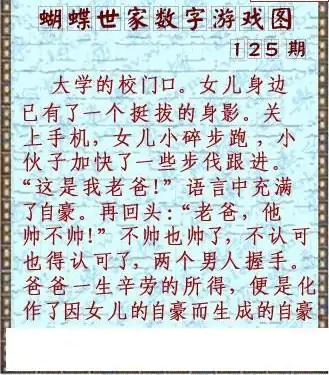 蝴蝶世家数字游戏图
125期
大学的校门口。女儿身边
已有了一个挺拔的身影。关
上手机，女儿小碎步跑，小
伙子加快了一些步伐跟进。
“这是我老爸!”语言中充满
了自豪。再回头:“老爸，他
帅不帅!”不帅也帅了，不认可
也得认可了，两个男人握手。
爸爸一生辛劳的所得，便是化
作了因女儿的自豪而生成的自豪